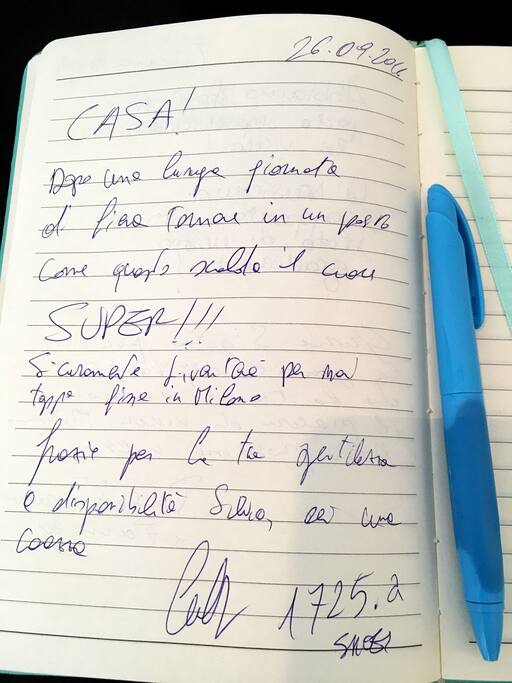 26.09.20
CASA!
Dopo una lunga giornata
di fiera tornare in un posto
come questo scalda il cuore
SUPER!!!
Sicuramente diventerà per noi
tappa fissa in Milano
Grazie per la tua gentilezza
e disponibilità Silvia, sei una
1725.2